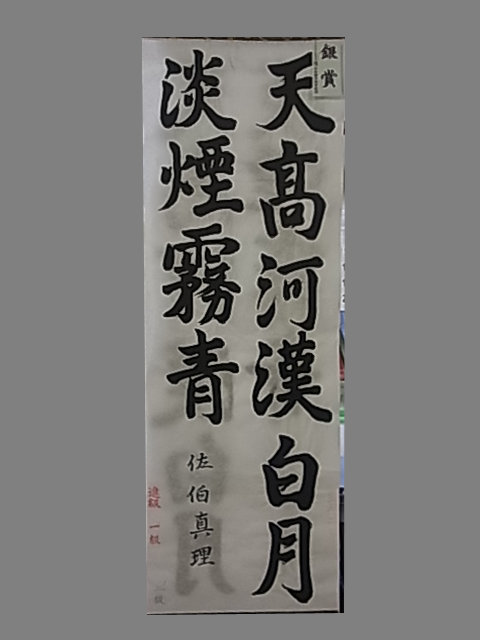 天高河漢白月
淡煙霧青
佐伯真理
銀賞
進級 一級